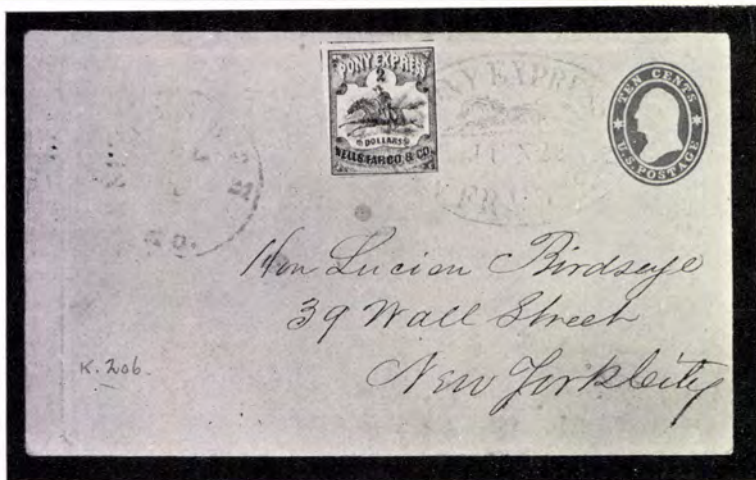 PONY EXPRESS
2
DOLLARS
WELLS FARGO & CO.
PONY EXPRESS
JUN 22
TEN CENTS
U.S. POSTAGE
Hon Lucien Birdseye
39 Wall Street
New York City
K. 206.